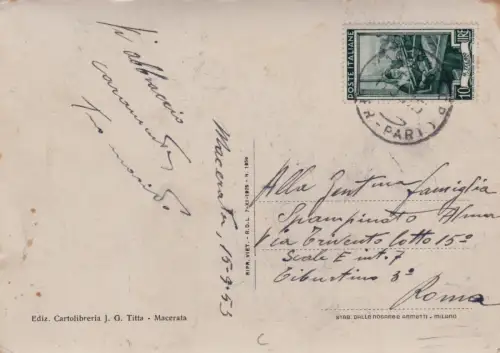 Vi abbraccio
caramente
Macerata, 15-9-53
POSTE ITALIANE
LIRE
10
PART
RIPR. VIET. - R.D.L. 7-XI-1925 - N. 1950
Alla Gentma famiglia
Spampinato Alma
Via Trivento lotto 15º
Scale E int. 7
Tiburtino 3º
Roma
Ediz. Cartolibreria J. G. Titta - Macerata
STAB. DALLE NOGARE E ARMETTI - MILANO